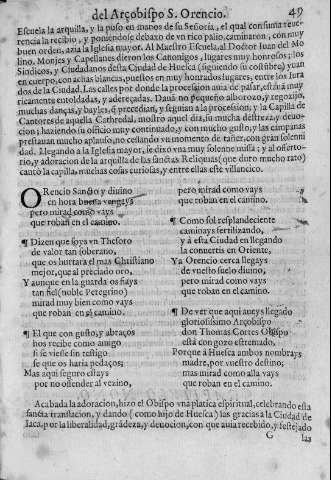 del Arçobispo S. Orencio. 49
Escuela la arquilla, y la puso en manos de su Señoria, el qual con suma reue-
rencia la recibio, y poniendose debaxo de vn rico palio, caminaron, con muy
buen orden, azia la Iglesia mayor. Al Maestro Escuela, al Doctor Iuan del Mo
lino, Monjes y Capellanes dieron los Canonigos, lugares muy honrosos; los
Sindicos, y Ciudadanos desta Ciudad de Huesca (siguiendo su costũbre) yuan
en cuerpo, con achas blancas, puestos en muy honrados lugares, entre los Iura
dos de la Ciudad. Las calles por donde la procession auia de pasar, estauã muy
ricamente entoldadas, y adereçadas. Dauã no pequeño alboroço, y regozijo,
muchas danças, y bayles, q̃ precedian, y seguian a la procession, y la Capilla de
Cantores de aquella Cathedral, mostro aquel dia, su mucha destreza, y deuo-
cion; haziendo su officio muy continuado, y con mucho gusto, y las campanas
prestauan mucho aplauso, no cessando vn momento de tañer, con gran solenni
dad. Llegando a la Iglesia mayor, se dixo vna muy solenne missa; y al oferto-
rio, y adoracion de la arquilla de las sanctas Reliquias (que duro mucho rato)
cantò la capilla, muchas cosas curiosas, y entre ellas este villancico.
ORencio Sancto y diuino
en hora buena vengays
pero mirad como vays
que roban en el camino.
¶ Dizen que soys vn Thesoro
de valor tan soberano,
que os hurtara el mas Christiano
mejor, que al preciado oro,
Y aunque en la guarda os fiays
tan fiel (noble Peregrino)
mirad muy bien como vays
que roban en el camino.
¶ El que con gusto, y abraços
hos recibe como amigo
si se viesse sin testigo
se que os haria pedaços;
Mas aqui seguro estays
por no ofender al vezino,
pero mirad como vays
que roban en el camino.
¶ Como sol resplandeciente
caminays fertilizando,
y à esta Ciudad en llegando
la conuertis en Oriente,
Ya Orencio cerca llegays
de vuestro suelo diuino,
pero mirad como vays
que roban en el camino.
¶ De ver que aqui aueys llegado
gloriosissimo Arçobispo
don Thomas Cortes Obispo
està con gozo estremado,
Porque à Huesca ambos nombrays
madre, por vuestro destino;
mas mirad como alla vays
que roban en el camino.
Acabada la adoracion, hizo el Obispo vna platica espiritual, celebrando esta
sancta translacion, y dando (como hijo de Huesca) las gracias a la Ciudad de
Iaca, por la liberalidad, grãdeza, y deuocion, con que auia recebido, y festejado
G las